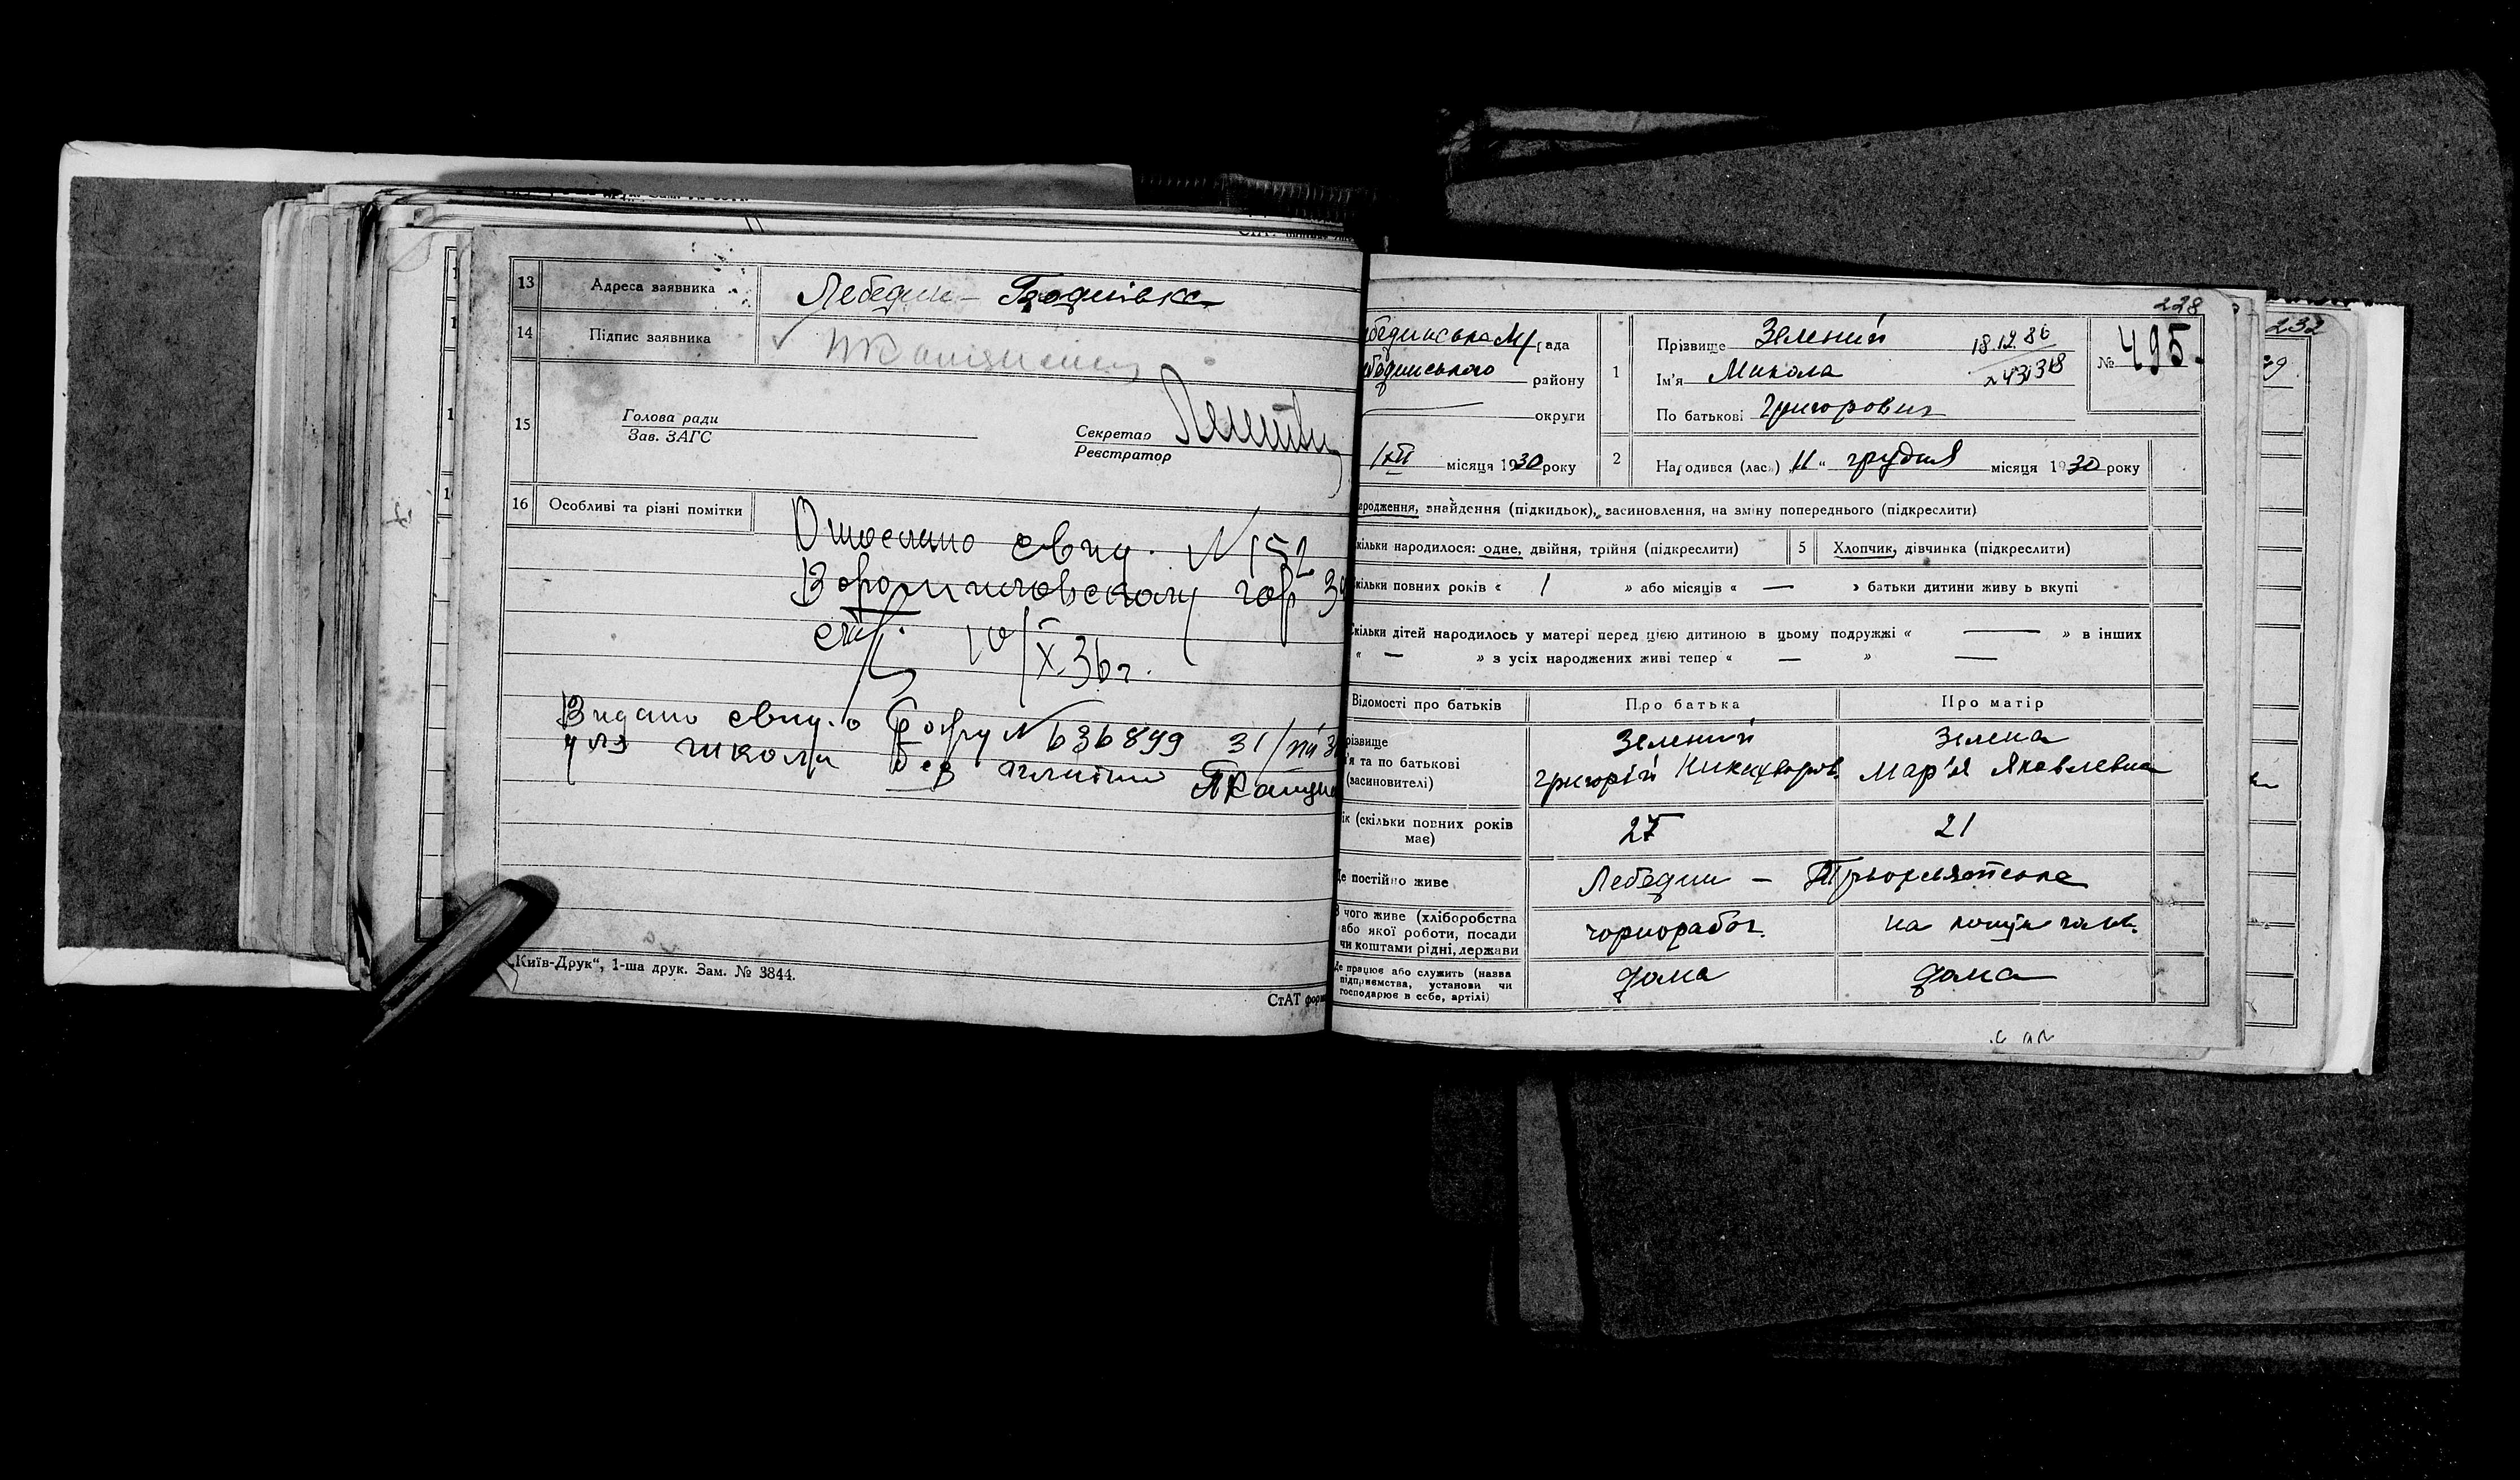 13 Адреса заявника Лебедин —
14 Підпис заявника
15 Голова ради
Зав. ЗАГС
Секретар
Реєстратор
16 Особливі та різні помітки
Отослано свид. N 152
Ворошиловскому гор
10/X 36 г.
Видано свид. о N 636899 31/
для школи без
„Київ-Друк“, 1-ша друк. Зам. № 3844.
СтАТ форм
228
232
рада
району
округи
місяця 1930 року
1 Прізвище Зелений
18.12.86
Ім'я Микола
По батькові Григорович
№ 495.
2 Народився (лась) „11“ грудня місяця 1930 року
ародження, знайдення (підкидьок), засиновлення, на зміну попереднього (підкреслити)
кільки народилося: одне, двійня, трійня (підкреслити) 5 Хлопчик, дівчинка (підкреслити)
кільки повних років « 1 » або місяців « — » батьки дитини живу ь вкупі
кільки дітей народилось у матері перед цією дитиною в цьому подружжі « — » в інших
« — » з усіх народжених живі тепер « — » —
Відомості про батьків Про батька Про матір
різвище Зелений Зелена
'я та по батькові Григорій Никифоров. Мар'я Яковлевна
(засиновителі)
ік (скільки повних років має) 27 21
Де постійно живе Лебедин —
З чого живе (хліборобства або якої роботи, посади чи коштами рідні, держави чорнороб. на
Де працює або служить (назва підприємства, установи чи господарює в себе, артілі) дома дома